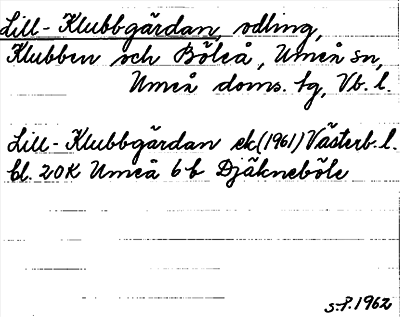 Lill-Klubbgärdan, odling,
Klubben och Böleå, Umeå sn,
Umeå doms. tg, Vb. l.
Lill-Klubbgärdan ek(1961) Västerb. l.
bl. 20K Umeå 6b Djäkneböle
S.P. 1962